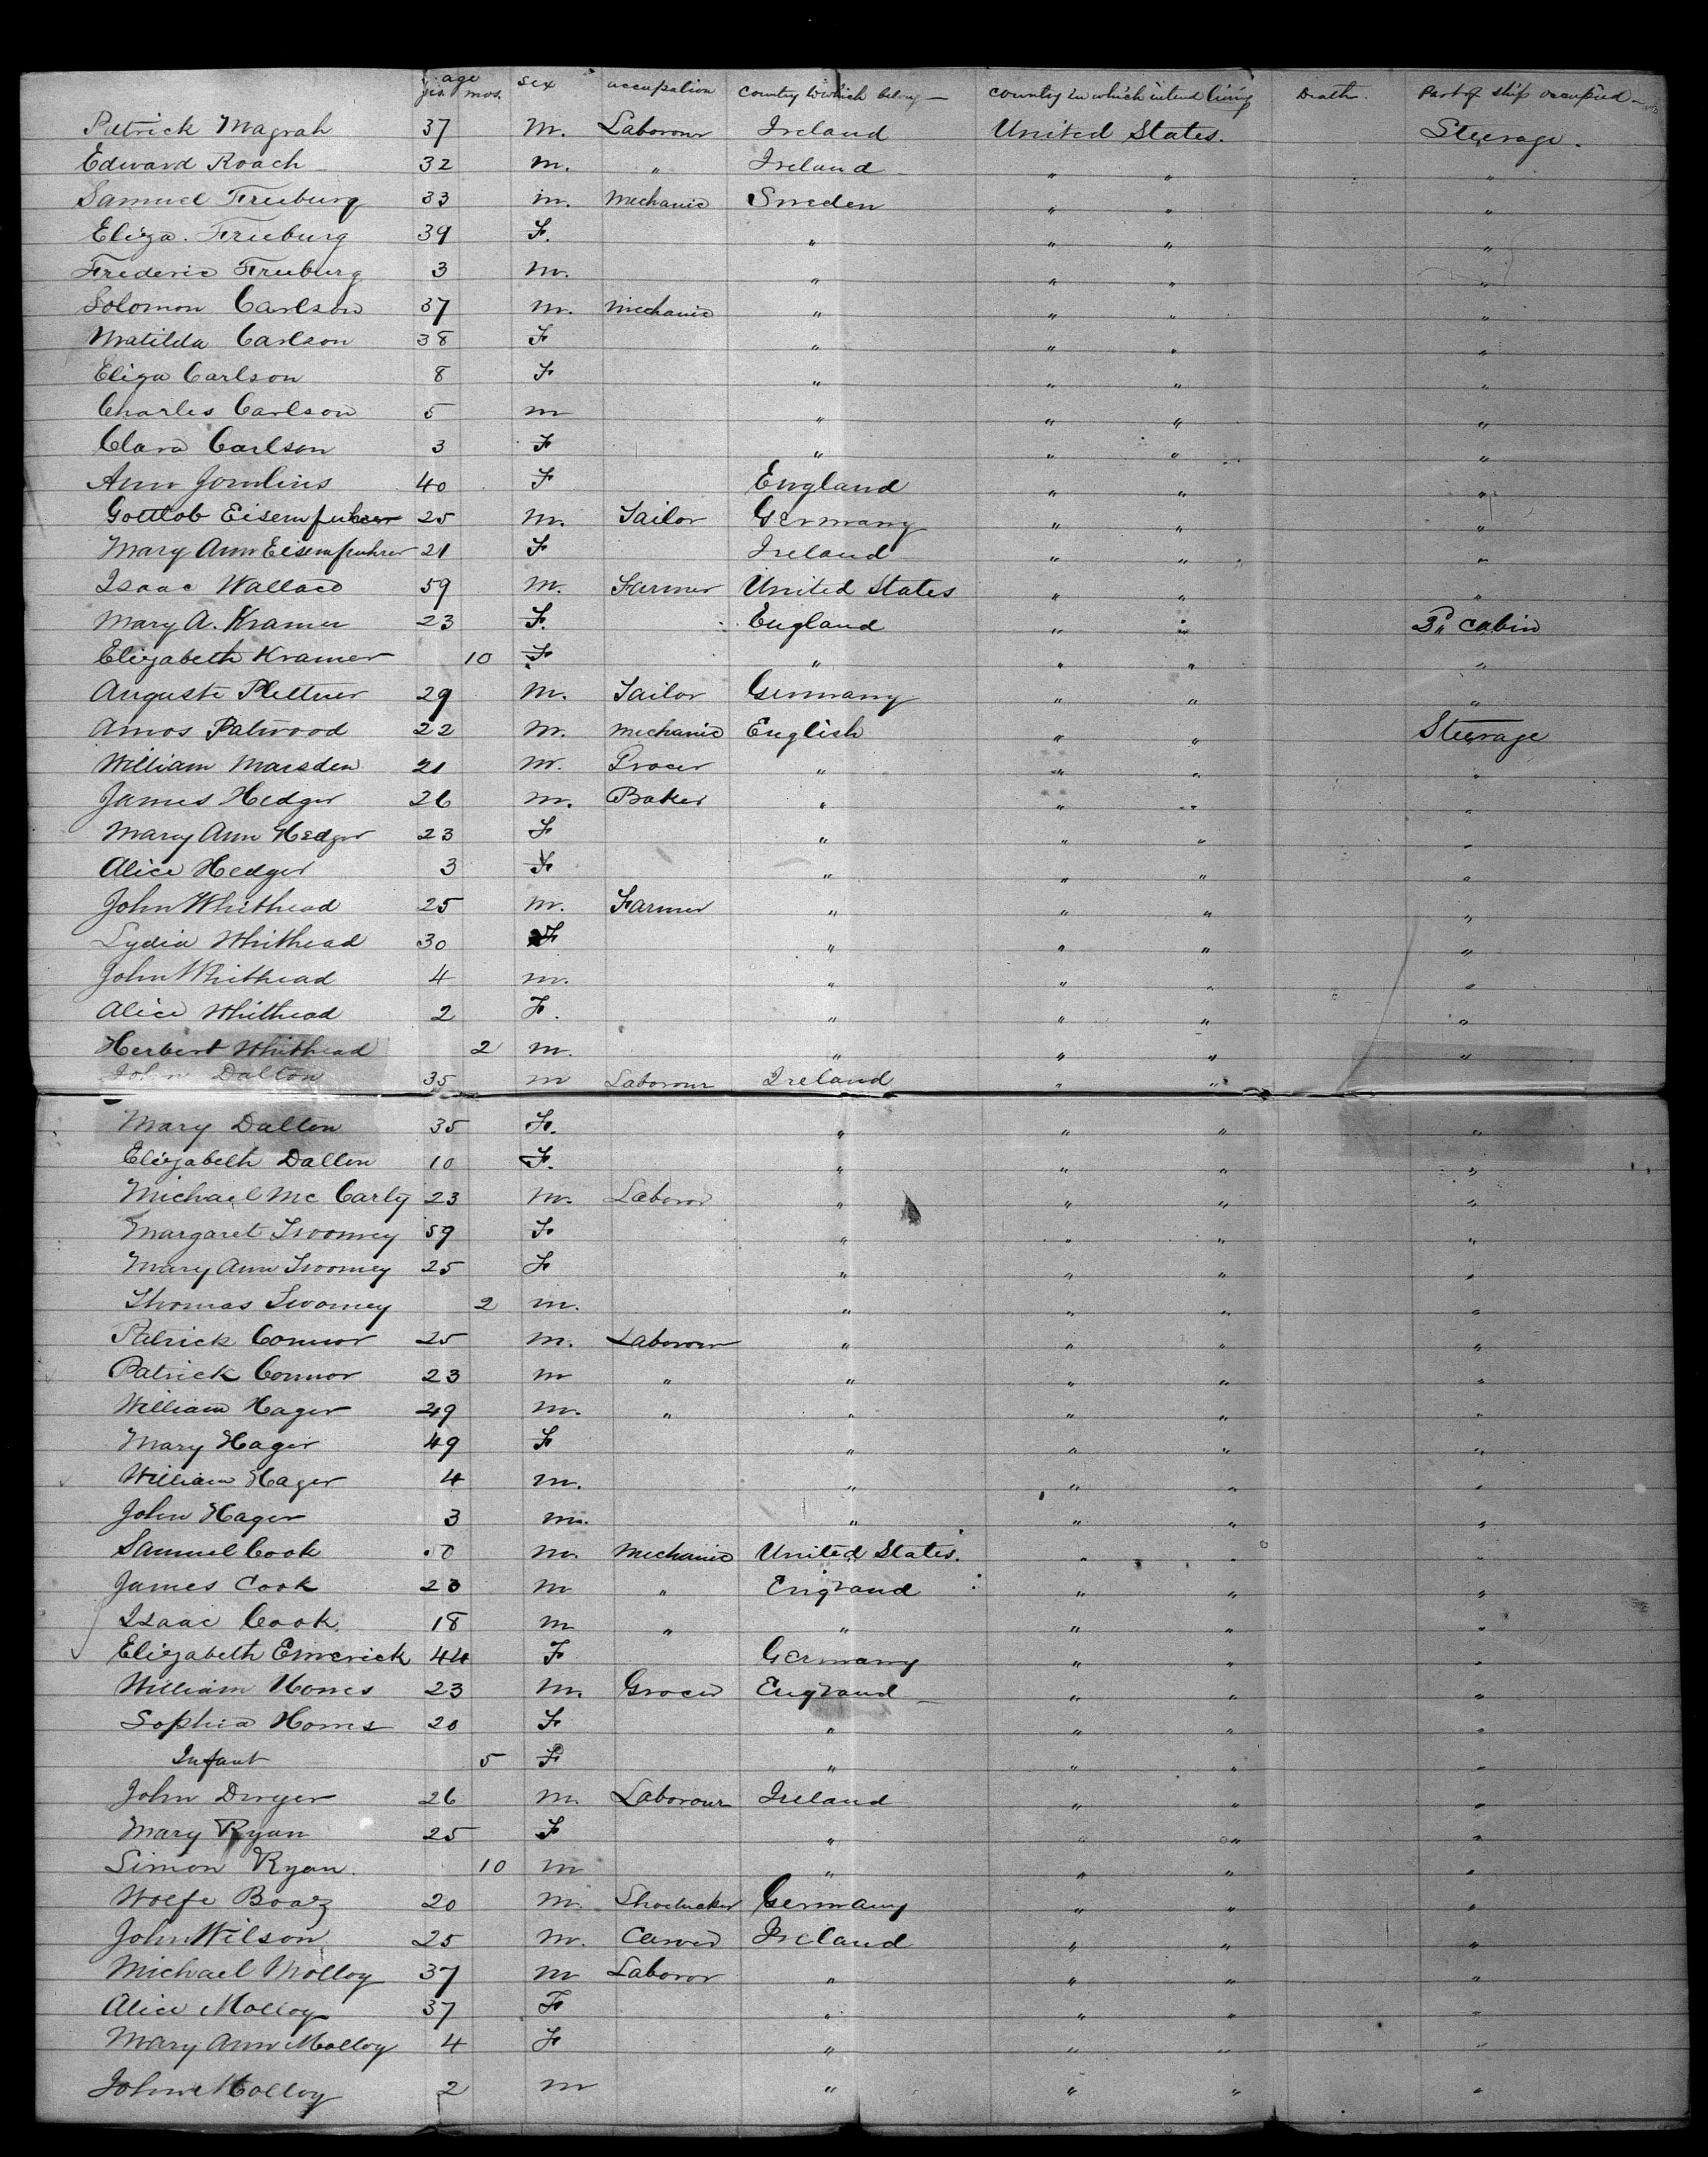 age sex occupation Country to which belong — Country in which intend living Death. Part of ship occupied —
yrs. mos.
Patrick Magrah 37 m. Laborour Ireland United States. Steerage.
Edward Roach 32 m. " Ireland " " "
Samuel Frieburg 33 m. Mechanic Sweden " " "
Eliza. Frieburg 39 F. " " " "
Frederic Frieburg 3 m. " " " "
Solomon Carlson 37 m. Mechanic " " " "
Matilda Carlson 38 F " " " "
Eliza Carlson 8 F " " " "
Charles Carlson 5 m " " " "
Clara Carlson 3 F " " " "
Ann Jomlins 40 F England " " "
Gottlob Eisenfuhrer 25 m. Tailor Germany " " "
Mary Ann Eisenfuhrer 21 F Ireland " " "
Isaac Wallace 59 m. Farmer United States " " "
Mary A. Kramer 23 F. England " " 3d cabin
Elizabeth Kramer 10 F " " " "
Auguste Plettner 29 m. Tailor Germany " " "
Amos Patwood 22 m. Mechanic English " " Steerage
William Marsden 21 m. Grocer " " " "
James Hedger 26 m. Baker " " " "
Mary Ann Hedger 23 F " " " "
Alice Hedger 3 F " " " "
John Whithead 25 m. Farmer " " " "
Lydia Whithead 30 F " " " "
John Whithead 4 m. " " " "
Alice Whithead 2 F. " " " "
Herbert Whithead 2 m. " " " "
John Dalton 35 m Laborour Ireland " "
Mary Dalton 35 F. " " " "
Elizabeth Dalton 10 F. " " " "
Michael Mc Carty 23 m. Laboror " " " "
Margaret Twoomey 59 F " " " "
Mary Ann Twoomey 25 F " " " "
Thomas Twoomey 2 m. " " " "
Patrick Connor 25 m. Laborour " " " "
Patrick Connor 23 m " " " " "
William Hager 49 m. " " " " "
Mary Hager 49 F " " " "
William Hager 4 m. " " " "
John Hager 3 m. " " " "
Samuel Cook 50 m. Mechanic United States. " " "
James Cook 23 m " England " " "
Isaac Cook. 18 m " " " " "
Elizabeth Emerick 44 F Germany " " "
William Homes 23 m. Grocer England — " " "
Sophia Homes 20 F " " " "
Infant 5 F " " " "
John Dwyer 26 m. Laborour Ireland " " "
Mary Ryan 25 F " " " "
Simon Ryan. 10 m " " " "
Wolfe Boaz 20 m. Shoemaker Germany " " "
John Wilson 25 m. Carver Ireland " " "
Michael Molloy 37 m Laboror " " " "
Alice Molloy 37 F " " " "
Mary Ann Molloy 4 F " " " "
John Molloy 2 m " " " "